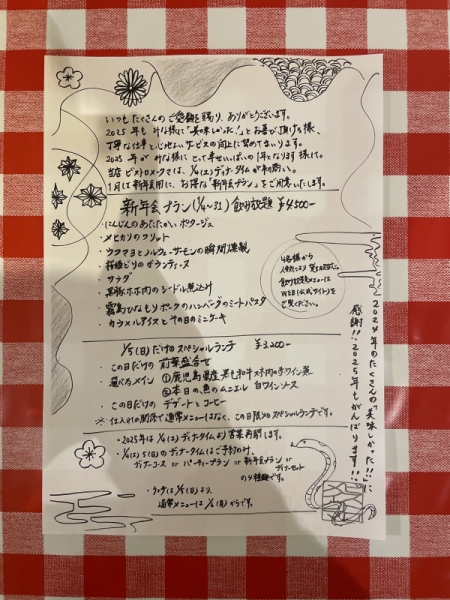 いつもたくさんのご愛顧を賜り、ありがとうございます。
2025年もみな様に「美味しかった！」とお喜び頂ける様、
丁寧な仕事と心地よいサービスの向上に努めてまいります。
2025年がみな様にとって幸せいっぱいの1年となります様に。
当店ビストロメタマは、1/4(土)ディナータイムが初商い。
1月は新年会用に、お得な「新年会プラン」をご用意いたします。
新年会プラン(1/4~31)飲み放題 ¥4,500-
・にんじんのあたたかいポタージュ
・メヒカリのフリット
・カラマヨとノルウェーサーモンの瞬間燻製
・桜姫どりのガランティーヌ
・サラダ
・黒豚ホホ肉のシードル煮込み
・霧島ひなもりポークのハンバーグのミートパスタ
・カラメルアイスとその日のミニケーキ
4名様から
飲み放題メニューは
WEB(公式サイト)を
ご覧ください。
1/5(日)だけのスペシャルランチ ¥3,200-
・この日だけの 前菜盛合せ
・選べるメイン ①鹿児島県産黒毛和牛スネ肉の赤ワイン煮
②本日の魚のムニエル 白ワインソース
・この日だけの デザートとコーヒー
※仕入れの関係で通常メニューはなく、この日限りのスペシャルランチです。
・2025年は 1/4(土)ディナータイムより営業再開します。
・1/4(土)5(日)のディナータイムはご予約のみ、
ディナーコース or パーティープラン or 新年会プラン or ディナーセット
の4種類です。
・ランチは 1/5(日)より、
通常メニューは 1/6(月)からです。
2024年のたくさんの「美味しかった!!」に
感謝!!2025年もがんばります!!